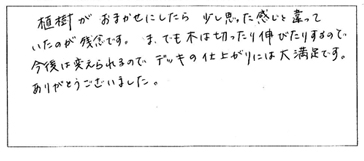 植樹がおまかせにしたら 少し思った感じと違って
いたのが残念です。ま、でも木は切ったり伸びたりするので
今後は変えられるので デッキの仕上がりには大満足です。
ありがとうございました。